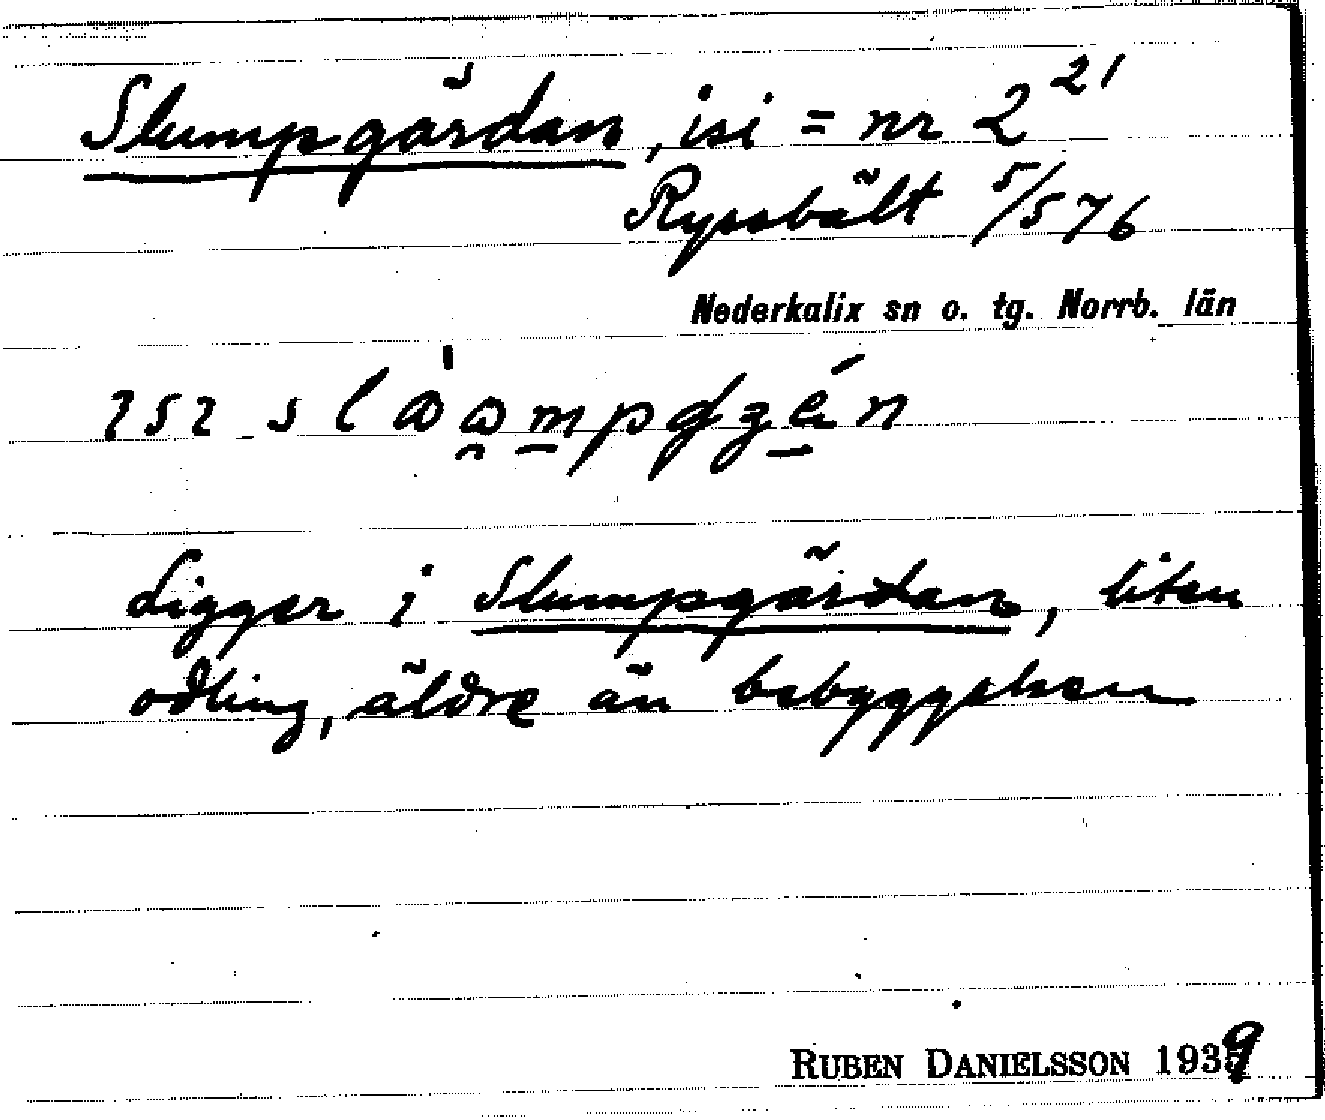 Slumpgärdan, isi = nr 2 21
Ryssbält 5/576
Nederkalix sn o. tg. Norrb. län
Ligger i Slumpgärdan, liten
odling, äldre än bebyggelsen
RUBEN DANIELSSON 1939